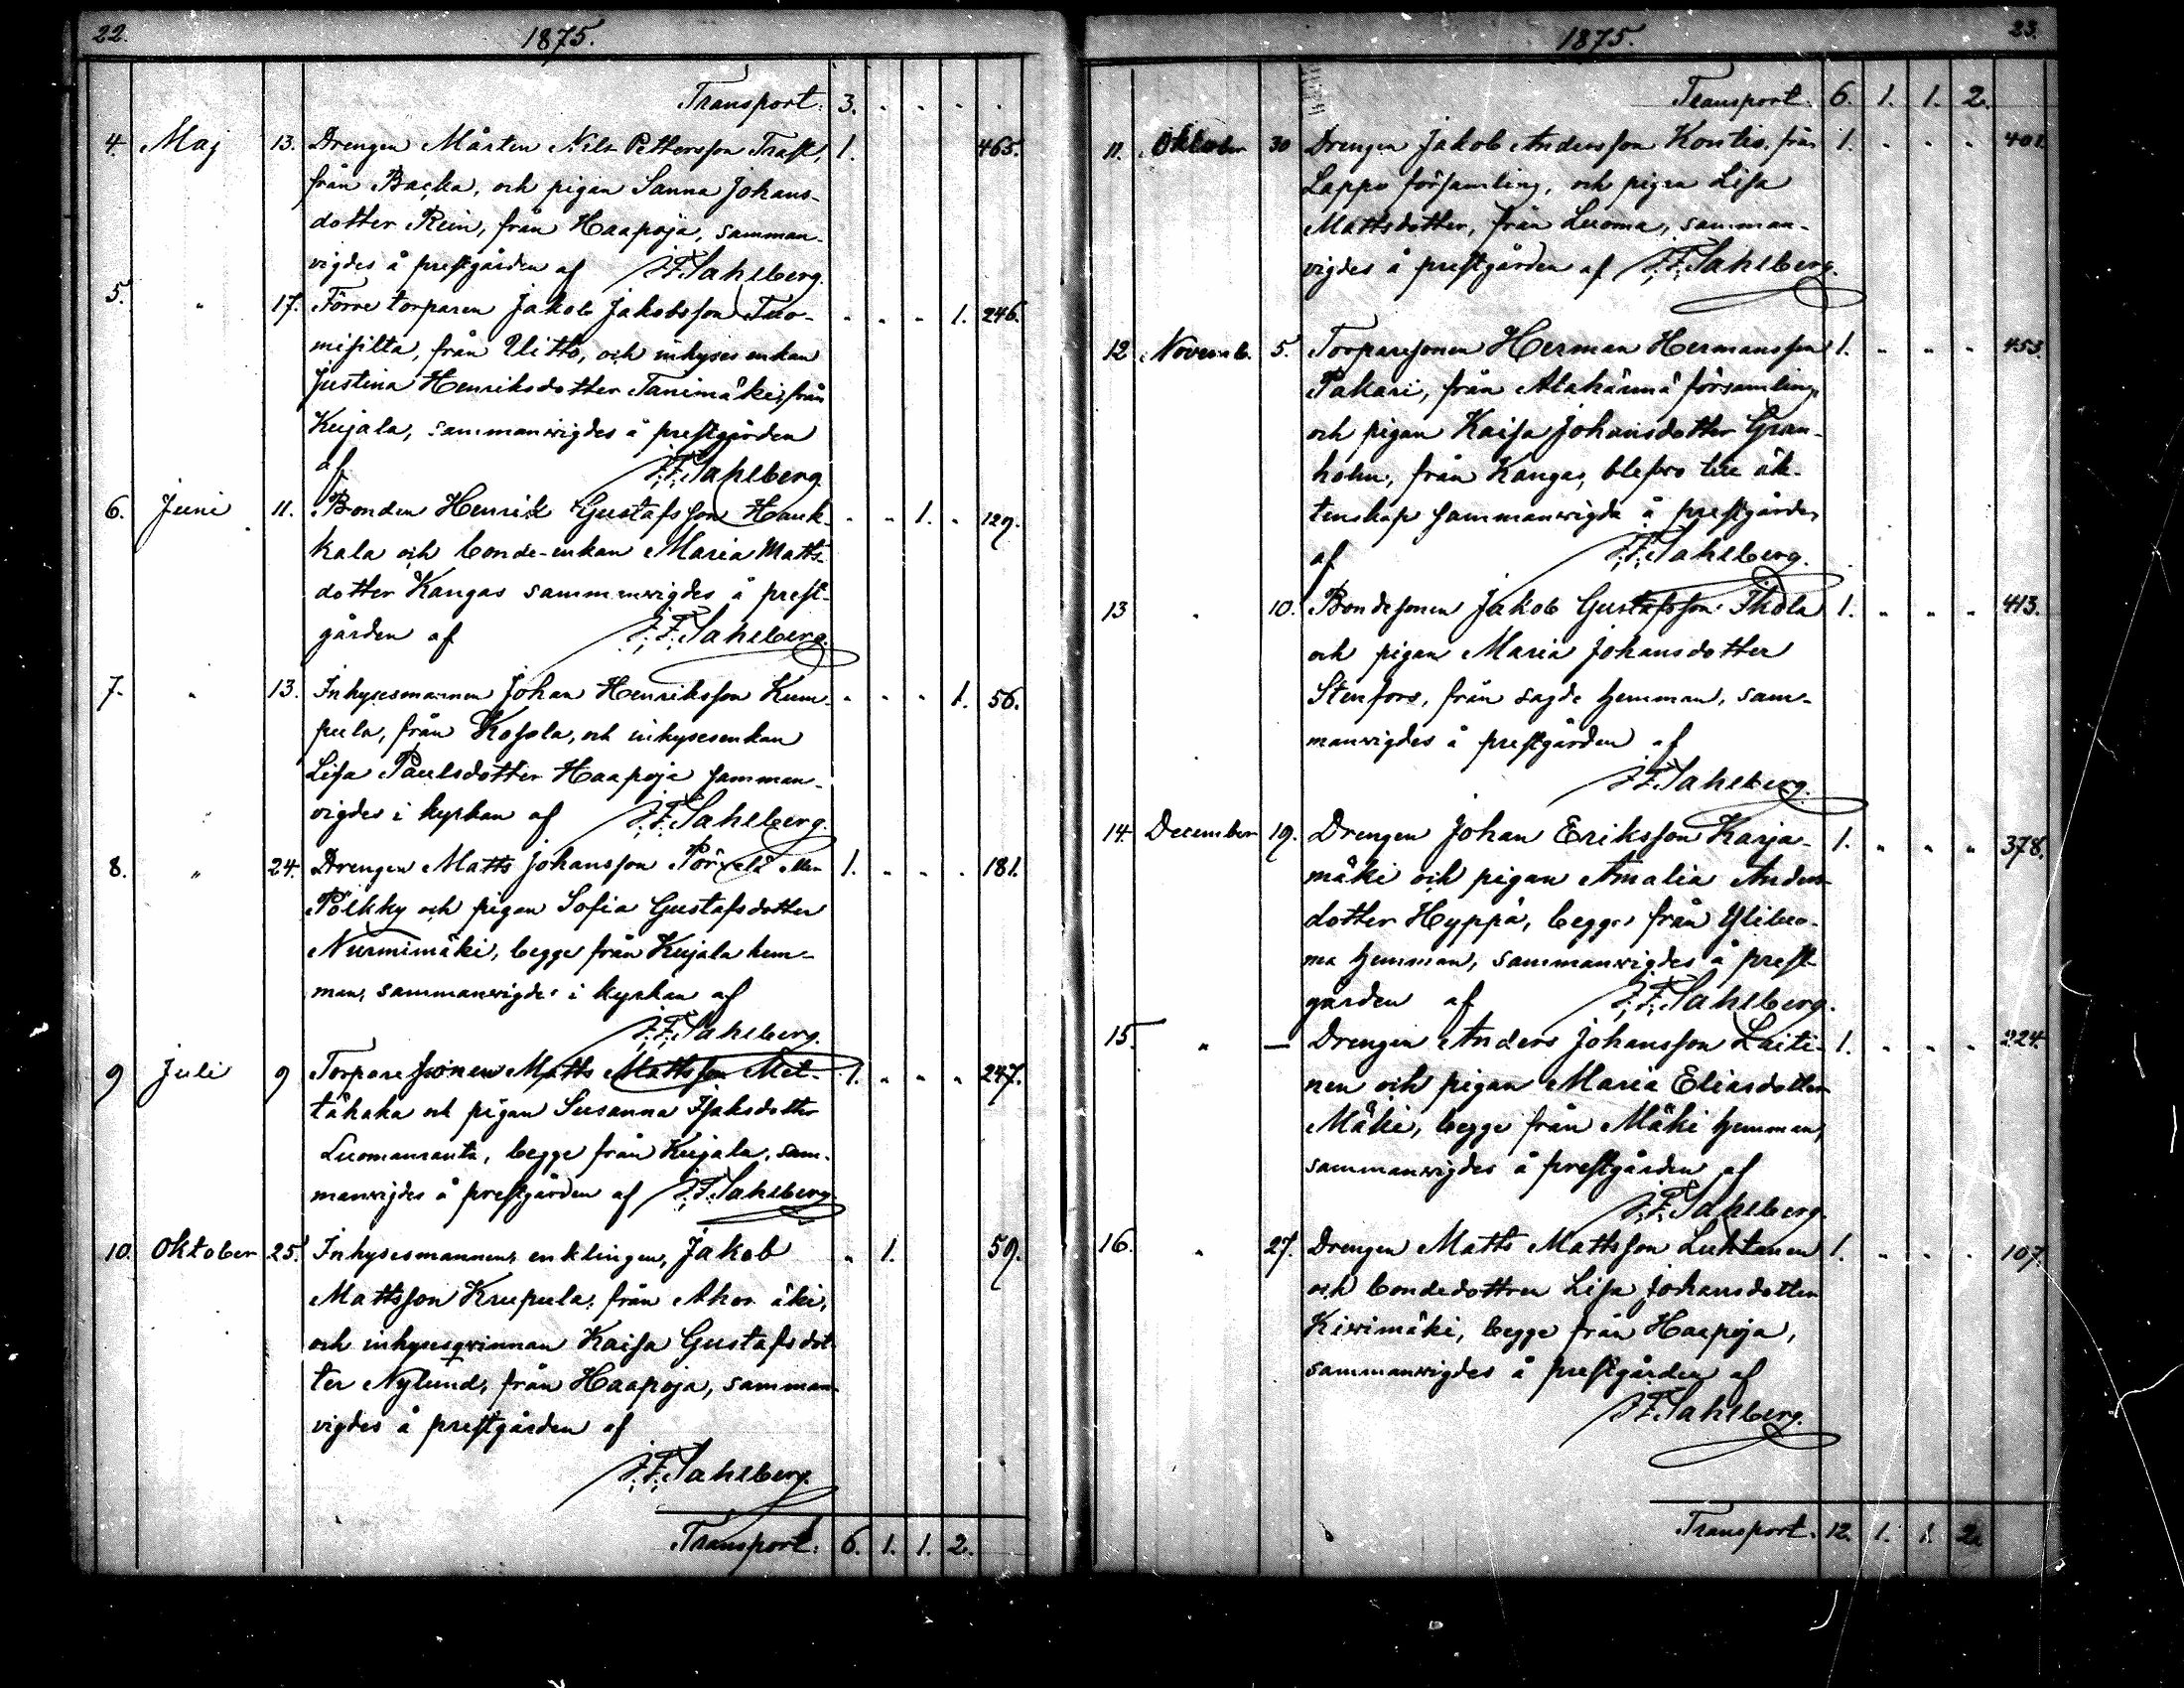 22. 1875.
Transport. 3. . . . .
4. Maj 13. Drengen Mårten Nils Pettersson Trast, 1. 465.
från Backa, och pigan Sanna Johans-
dotter Rein, från Haapoja, samman-
vigdes å prestgården af J. F. Sahlberg.
5. " 17. Förre torparen Jakob Jakobsson Tuo- . . . 1. 246.
misilta, från Ulitto, och inhyses enkan
Justina Henriksdotter Tanimäki, från
Kujala, sammanvigdes å prestgården
af J. F. Sahlberg.
6. Juni 11. Bonden Henrik Gustafsson Hauk- . . 1. . 129.
kala och bonde-enkan Maria Matts-
dotter Kangas sammanvigdes å prest-
gården af J. F. Sahlberg.
7. " 13. Inhysesmannen Johan Henriksson Kum- . . . 1. 56.
pula, från Kosola, och inhysesenkan
Lisa Paulsdotter Haapoja samman-
vigdes i kyrkan af J. F. Sahlberg.
8. " 24. Drengen Matts Johansson 1. . . . 181.
Pölkky och pigan Sofia Gustafsdotter
Nurmimäki, begge från Kujala hem-
man, sammanvigdes i kyrkan af
J. F. Sahlberg.
9 Juli 9 Torparesonen Matts Mattsson Met- 1. . . . 247.
tähaka och pigan Susanna Isaksdotter
Luomanranta, begge från Kujala, sam-
manvigdes å prestgården af J. F. Sahlberg.
10. Oktober 25. Inhysesmannen, enklingen, Jakob " 1. 59.
Mattsson Krupula, från
och inhysesqvinnan Kaisa Gustafsdot-
ter Nylund, från Haapoja, samman-
vigdes å prestgården af
J. F. Sahlberg.
Transport. 6. 1. 1. 2.
1875. 23.
Transport. 6. 1. 1. 2.
11. Oktober 30 Drengen Jakob Andersson Kontio, från 1. . . . 401.
Lappo församling, och pigan Lisa
Mattsdotter, från Luoma, samman-
vigdes å prestgården af J. F. Sahlberg.
12 Novemb. 5. Torparesonen Herman Hermansson 1. " " " 453.
Pakari, från Alahärmä församling,
och pigan Kaisa Johansdotter Gran-
holm, från Kangas, blefvo till äk-
tenskap sammanvigda å prestgården
af J. F. Sahlberg.
13 " 10. Bondesonen Jakob Gustafsson Ikola 1. " " " 413.
och pigan Maria Johansdotter
Stenfors, från sagde hemman, sam-
manvigdes å prestgården af
J. F. Sahlberg.
14. December 19. Drengen Johan Eriksson Karja- 1. " " " 378.
mäki och pigan Amalia Anders-
dotter Hyppä, begge från Yliluo-
ma hemman, sammanvigdes å prest-
gården af J. F. Sahlberg.
15. " — Drengen Anders Johansson Laiti- 1. . . . 224.
nen och pigan Maria Eliasdotter
Mäki, begge från Mäki hemman,
sammanvigdes å prestgården af
J. F. Sahlberg.
16. " 27. Drengen Matts Mattsson Luhtanen 1. . . . 107.
och bondedottren Lisa Johansdotter
Kivimäki, begge från Haapoja,
sammanvigdes å prestgården af
J. F. Sahlberg.
Transport. 12. 1. 1. 2.